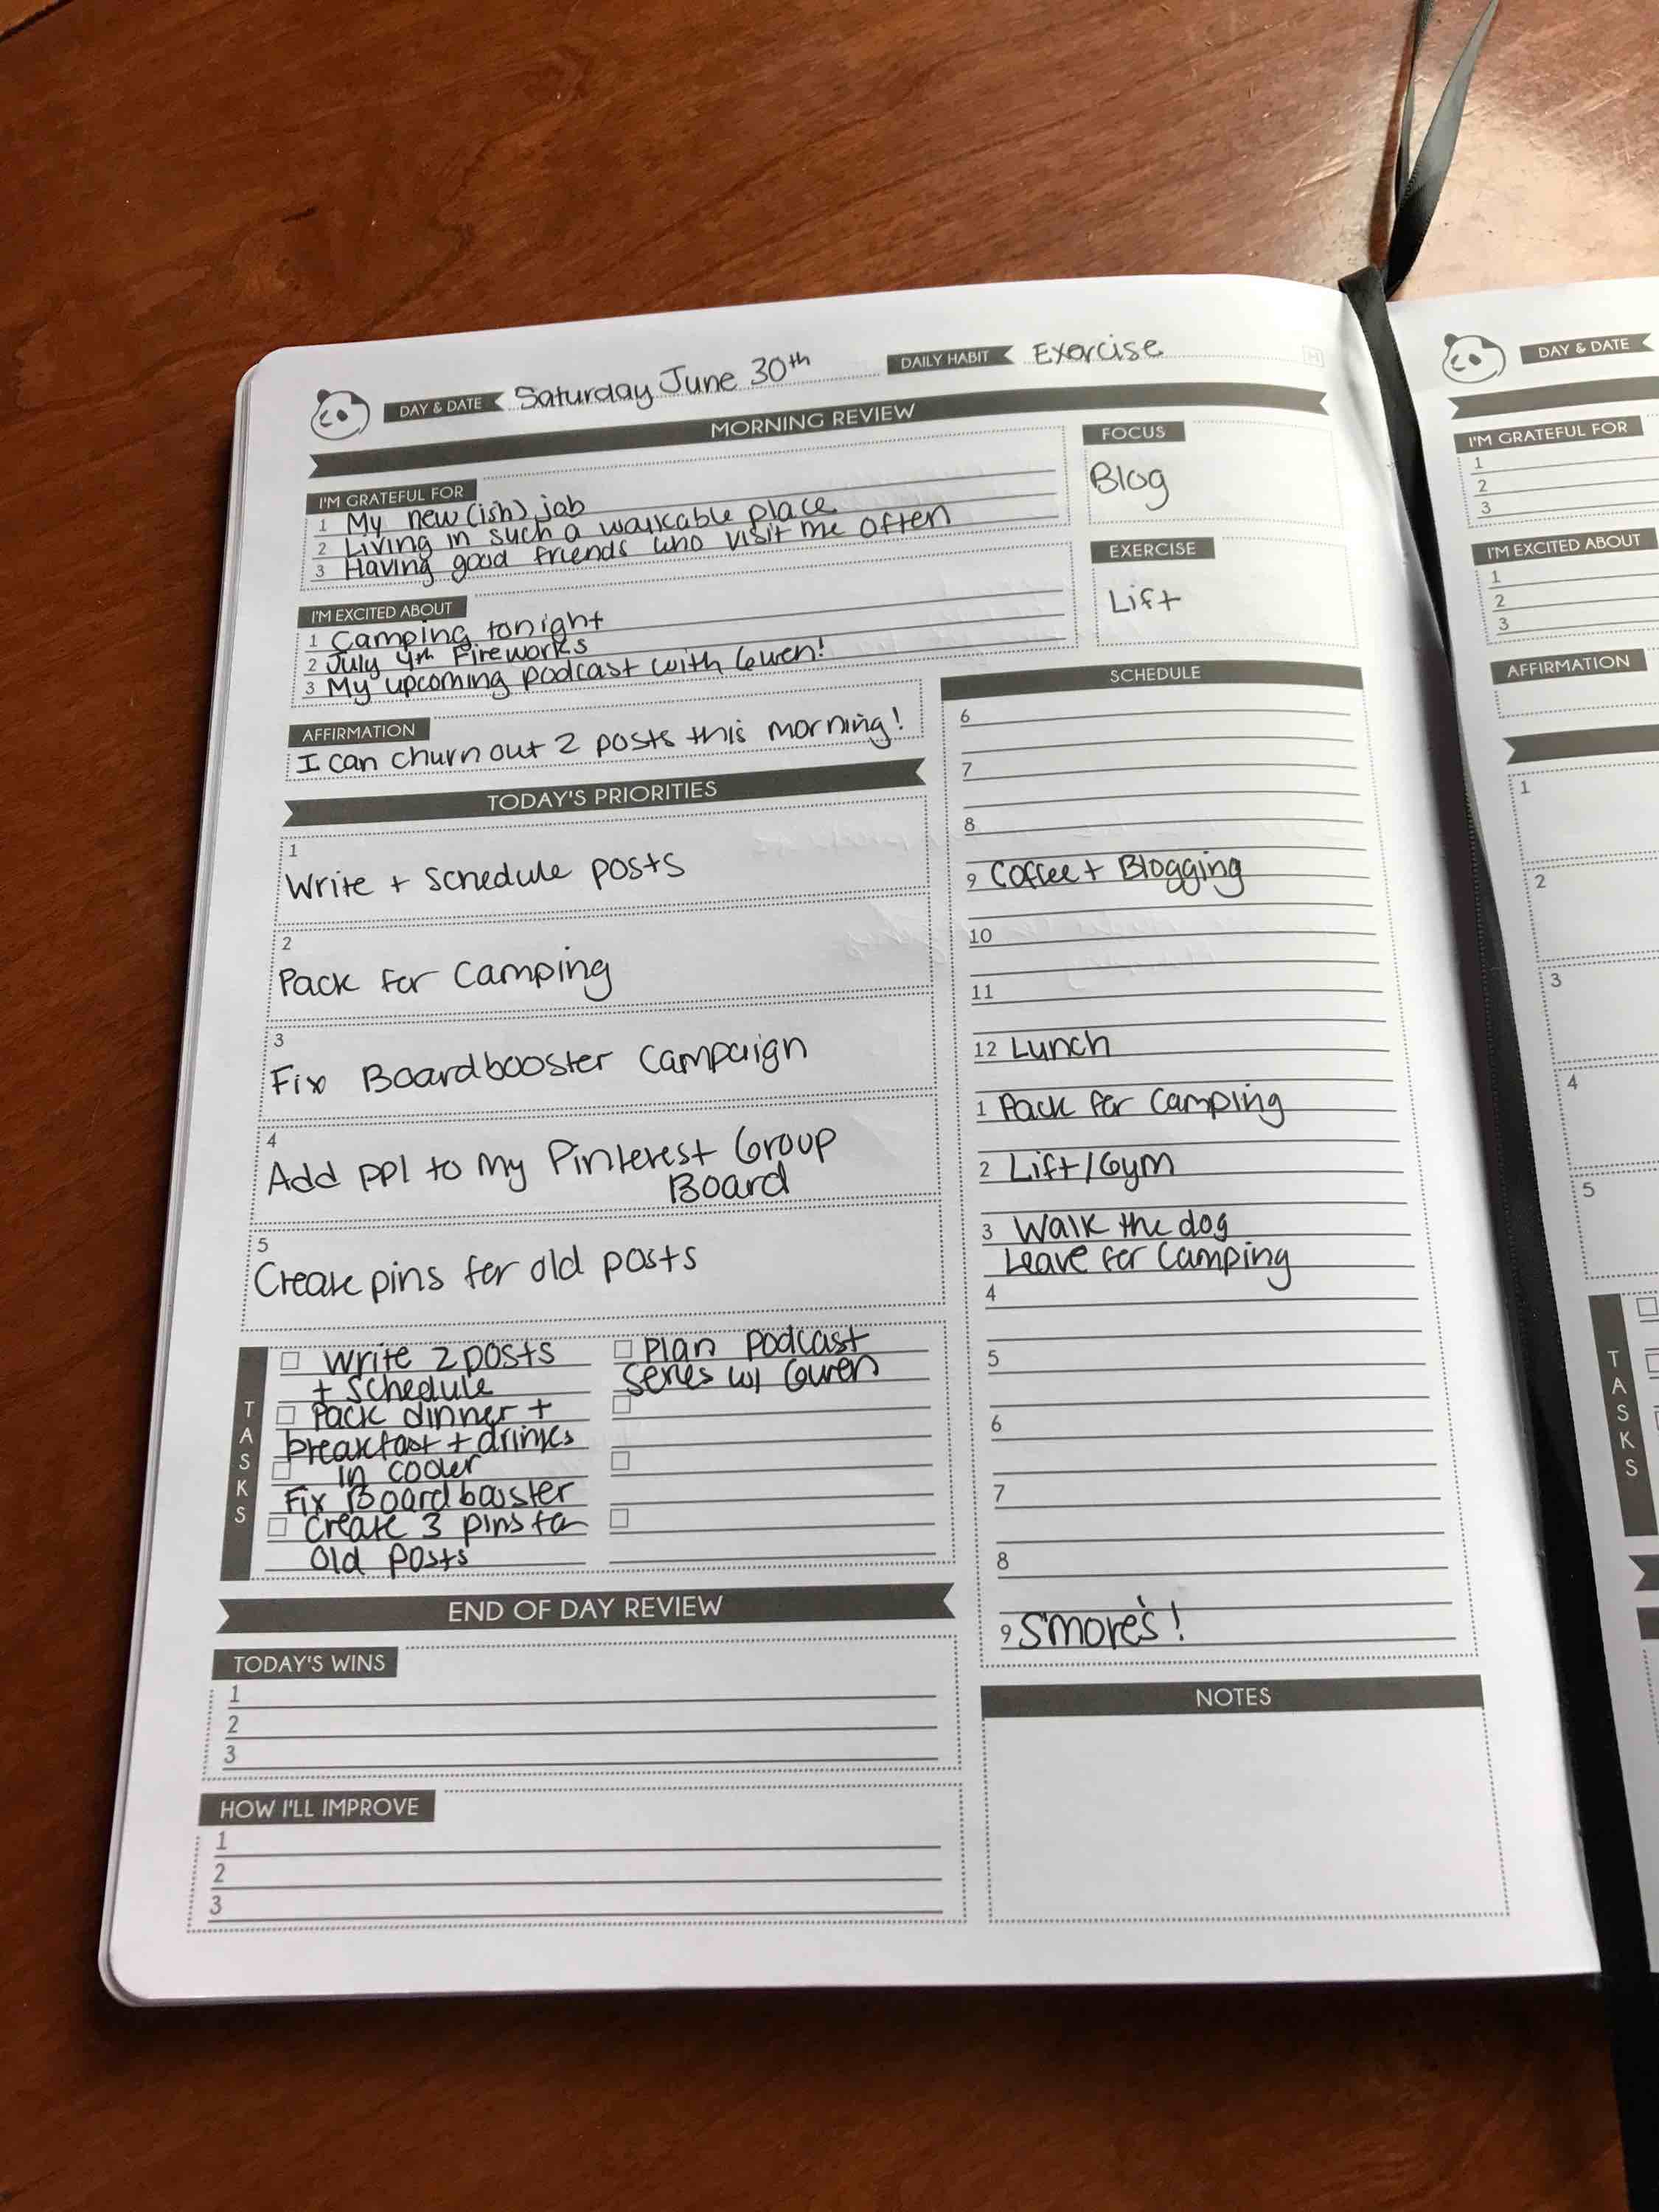 DAY & DATE Saturday June 30th DAILY HABIT Exercise H
MORNING REVIEW
I'M GRATEFUL FOR
1 My new(ish) job
2 Living in such a walkable place
3 Having good friends who visit me often
I'M EXCITED ABOUT
1 Camping tonight
2 July 4th Fireworks
3 My upcoming podcast with Gwen!
AFFIRMATION
I can churn out 2 posts this morning!
FOCUS
Blog
EXERCISE
Lift
TODAY'S PRIORITIES
1
Write + Schedule posts
2
Pack for Camping
3
Fix Boardbooster Campaign
4
Add ppl to my Pinterest Group
Board
5
Create pins for old posts
TASKS
Write 2 posts
+ Schedule
Pack dinner +
breakfast + drinks
in cooler
Fix Boardbooster
Create 3 pins for
old posts
Plan podcast
series w/ Gwen
SCHEDULE
6
7
8
9 Coffee + Blogging
10
11
12 Lunch
1 Pack for Camping
2 Lift/Gym
3 Walk the dog
Leave for Camping
4
5
6
7
8
9 S'mores!
END OF DAY REVIEW
TODAY'S WINS
1
2
3
HOW I'LL IMPROVE
1
2
3
NOTES
DAY & DATE
I'M GRATEFUL FOR
1
2
3
I'M EXCITED ABOUT
1
2
3
AFFIRMATION
1
2
3
4
5
TASKS